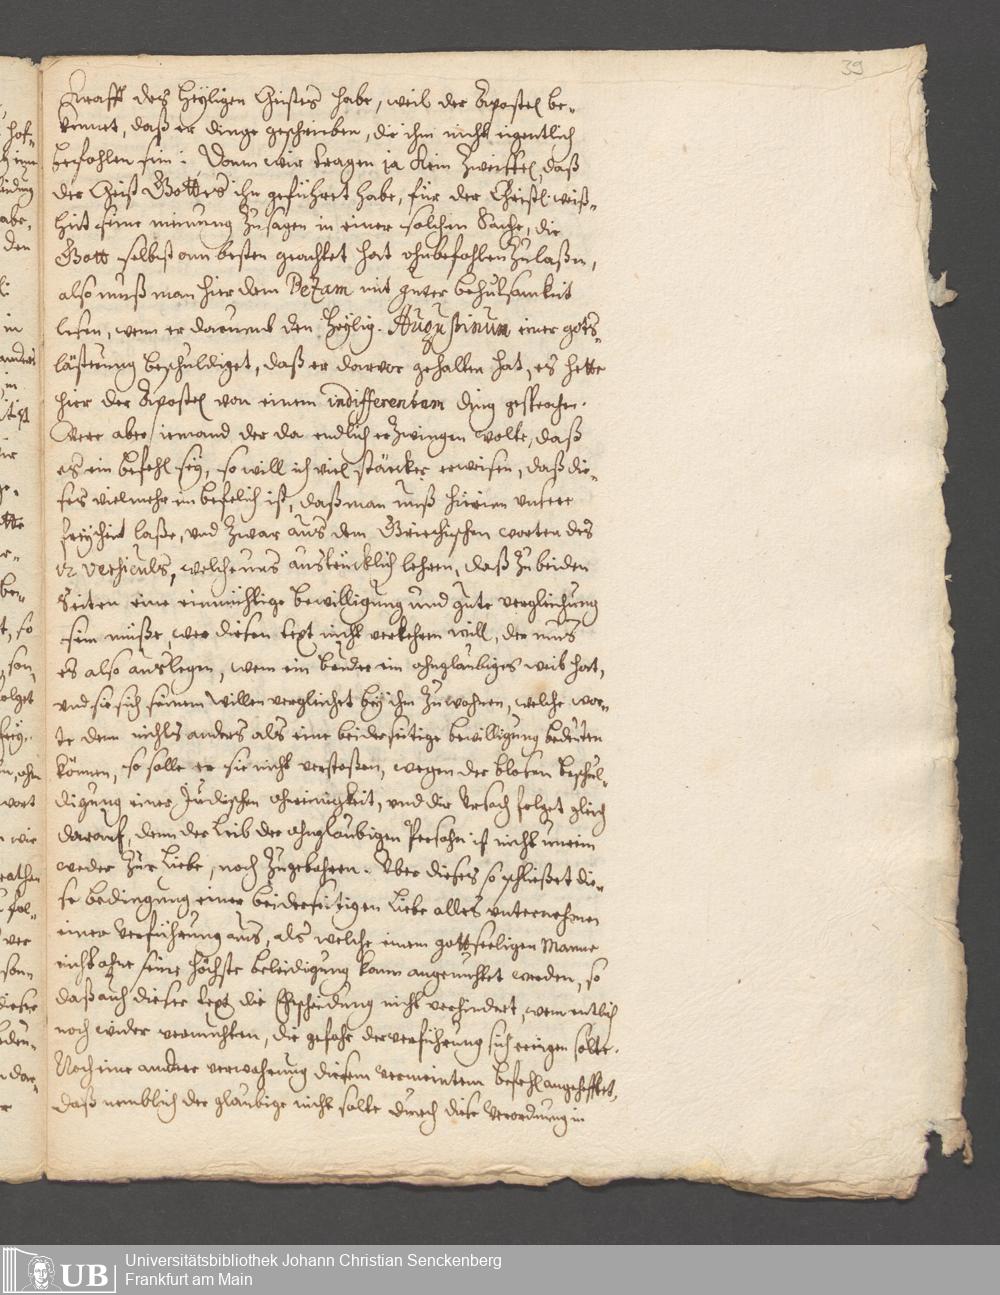 39
Krafft des Heyligen Geistes habe, weil der Apostel be-
kennet, daß er dinge geschrieben, die ihm nicht eigentlich
befohlen sein: Denn wir tragen ja kein Zweiffel, daß
der Geist Gottes ihn geführet habe, für der Christl: weiß-
heit seine meinung Zusagen in einer solchen Sache, die
Gott selbst am besten geachtet hat ohnbefohlen Zulaßen,
also muß man hier dem Bezam mit guter behutsamkeit
lesen, wenn er darumb den Heylig. Augustinum einer gots-
lästerung beschuldiget, daß er darvor gehalten hat, es hette
hier der Apostel von einem indifferentem ding gesprochen.
Were aber iemand der da endlich erzwingen wolte, daß
es ein befehl sey, so will ich viel stärcker erweisen, daß die-
ses vielmehr im befelich ist, daß man uns hierinn unsere
freyheit laße, und zwar aus dem Griechischen worten des
12 versiculs, welche uns austrücklich lehren, daß zu beiden
Seiten eine einmüthige bewilligung und gute vergleichung
sein müße, wer diesen text nicht verkehren will, der mus
es also auslegen, wenn ein bruder ein ohngläubiges weib hat,
und sie sich seinem willen vergleichet bey ihm zu wohnen, welche wor-
te denn nichts anders als eine beiderseitige bewilligung bedeuten
können, so solle er sie nicht verstoßen, wegen der blosen beschul-
digung einer Jüdischen ohnreinigkeit, und die Ursach folget gleich
darauf, denn der Leib der ohngläubigen Persohn ist nicht unrein
weder zur Liebe, noch Zugebehren. Uber dieses so schließet die-
se bedingung einer beiderseitigen Liebe alles unternehmen
einer verführung aus, als welche einem gottseeligen Manne
nicht ohne seine höchste beleidigung kann angemuhtet werden, so
daß auch dieser text die Ehscheidung nicht verhindert, wenn endlich
noch wider vermuhten, die gefahr der verführung sich ereigen solte.
Noch eine andere verwahrung diesem vermeinten befehl angeheftet,
daß nemblich der gläubige nicht solte durch diese Verordnung in
Universitätsbibliothek Johann Christian Senckenberg
Frankfurt am Main
UB